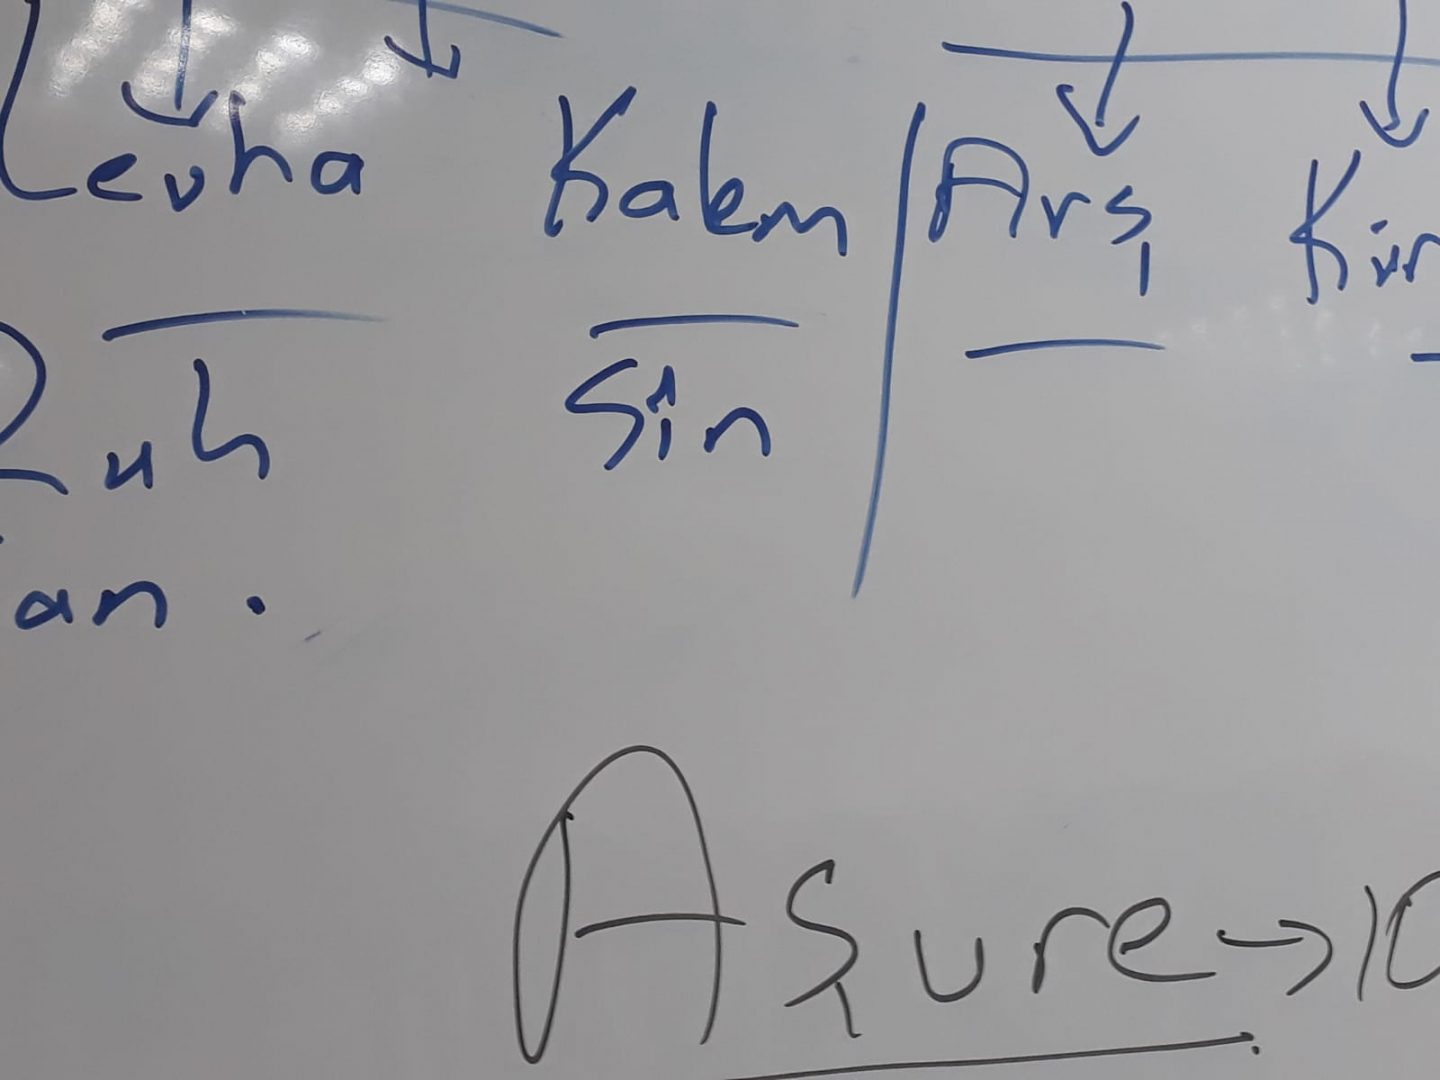 Levha Kalem Arş Kür
Ruh Sin
an.
Aşure → 10